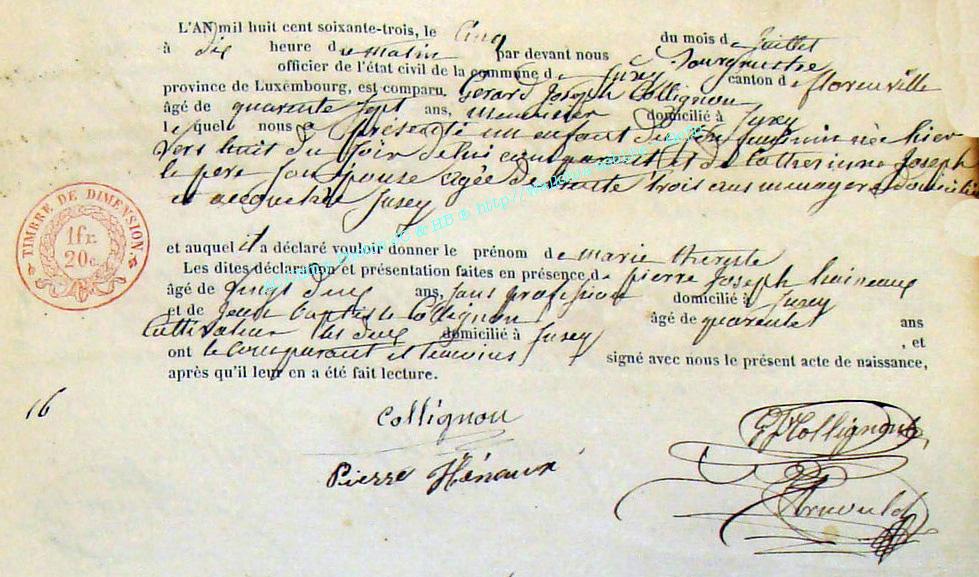 L'AN mil huit cent soixante-trois, le Cinq du mois de Juillet
à dix heure du matin par devant nous Bourgmestre
officier de l'état civil de la commune de Jusey canton de florenville
province de Luxembourg, est comparu Gerard Joseph Collignon
âgé de quarente sept ans, meunier domicilié à Jusey
lequele nous a présenté un enfant du sexe feminin née hier
vers huit du soir de lui comparant et de Catherinne Joseph
le pere son epouse agée de trente trois ans menagere domicilié
et acquetré Jusey
et auquel il a déclaré vouloir donner le prénom de marie therese
Les dites déclaration et présentation faites en présence de pierre Joseph haineaux
âgé de vingt deux ans, sans profession domicilié à Jusey
et de Jean baptiste Collignon âgé de quarente ans
Cultivateur les deux domicilié à Jusey , et
ont le comparant et temoins signé avec nous le présent acte de naissance,
après qu'il leur en a été fait lecture.
TIMBRE DE DIMENSION
1 fr.
20 c.
16
Collignon
GJ Collignon
Pierre Hénaux